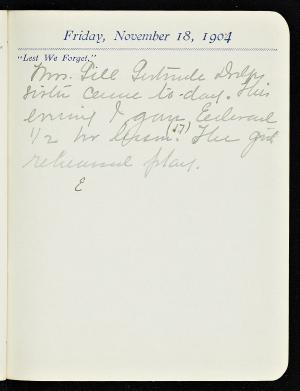 Friday, November 18, 1904
"Lest We Forget."
Mrs. Gill Gertrude Dolp's
sister came to-day. This
evening I gave Edward
1/2 hr lesson. (17) The girls
rehearsed play.
E